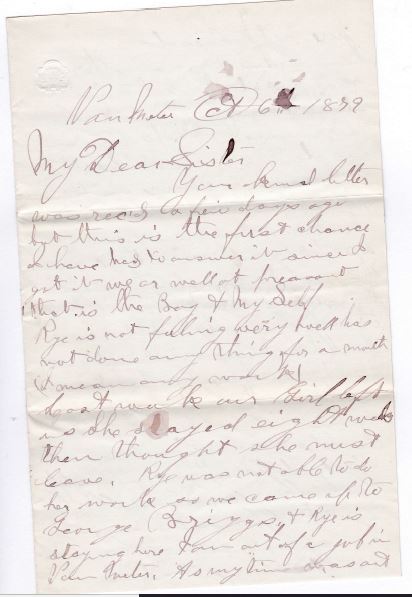 Van Meter Oct 6th 1879
My Dear Sister
Your kind letter
was recd a few days ago
but this is the first chance
I have had to answer it since I
got it we ar well at preasant
that is the Boy & My Self
Rye is not feeling very well has
not done any thing for a month
(I mean any work)
Last week our Girl left
us she stayed eight weeks
then thought she must
leave. Rye was not able to do
her work so we came up to
George Briggs, & Rye is
staying here I am out of a job in
Van Meter. As my time was out